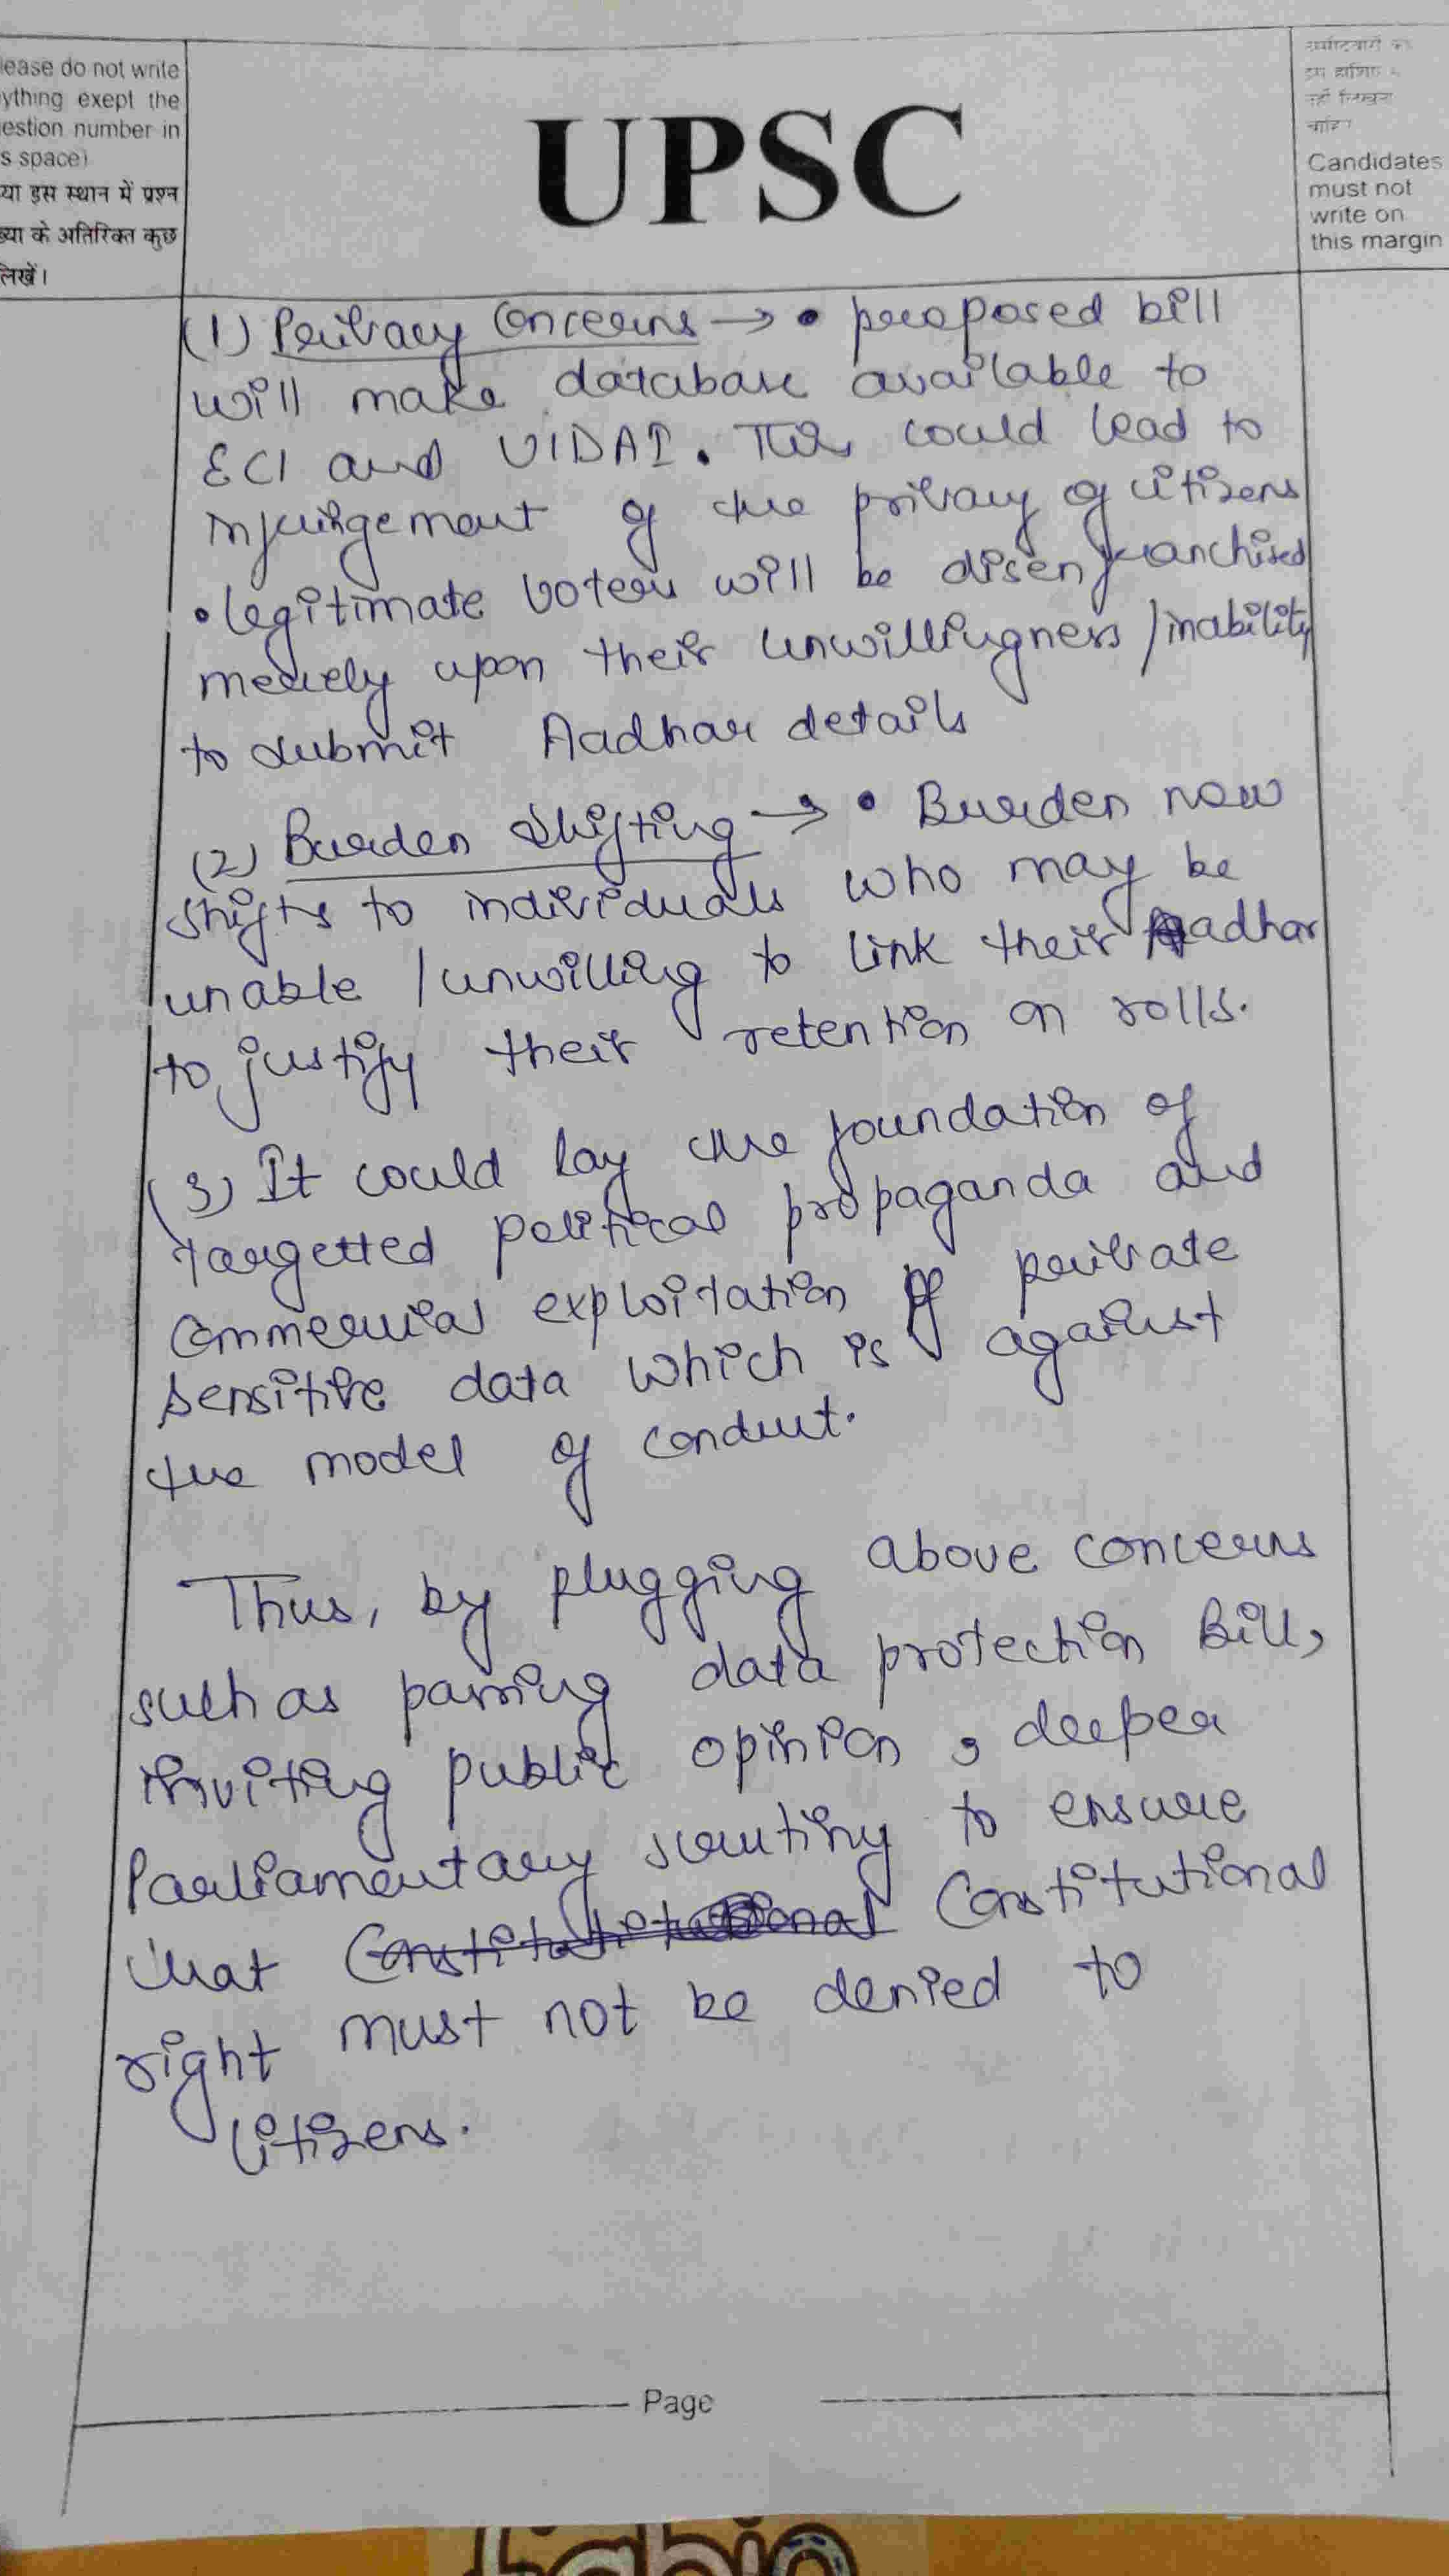 lease do not write
ything exept the
estion number in
s space)
या इस स्थान में प्रश्न
ख्या के अतिरिक्त कुछ
लिखें।
UPSC
उम्मीदवारों को
इस हाशिए में
नहीं लिखना
चाहिए
Candidates
must not
write on
this margin
(1) Privacy Concerns → • proposed bill
will make database available to
ECI and UIDAI. This could lead to
infringement of the privacy of citizens
• legitimate voters will be disenfranchised
merely upon their unwillingness / inability
to submit Aadhar details
(2) Burden Shifting → • Burden now
shifts to individuals who may be
unable / unwilling to link their Aadhar
to justify their retention on rolls.
(3) It could lay the foundation of
targetted political propaganda and
Commercial exploitation of private
sensitive data which is against
the model of conduct.
Thus, by plugging above concerns
such as passing data protection Bill,
inviting public opinion, deeper
Parliamentary scrutiny to ensure
that Constitutional
right must not be denied to
citizens.
Page